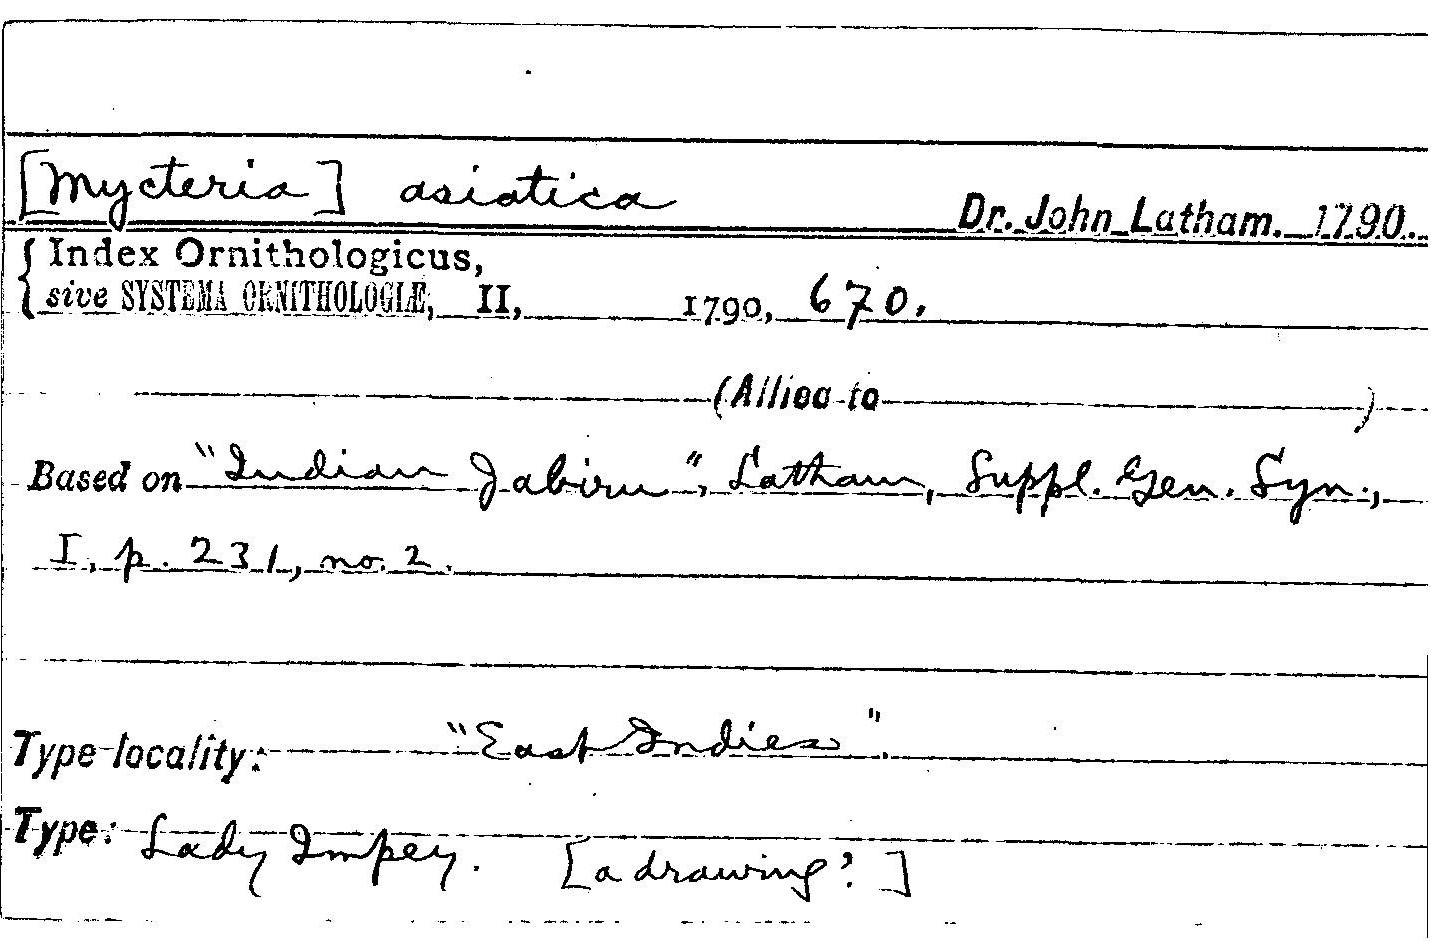 [Mycteria] asiatica
Dr. John Latham. 1790.
Index Ornithologicus,
sive SYSTEMA ORNITHOLOGIÆ, II, 1790, 670.
(Allied to )
Based on "Indian Jabiru", Latham, Suppl. Gen. Syn.,
I, p. 231, no. 2.
Type locality: "East Indies".
Type: Lady Impey. [a drawing? ]